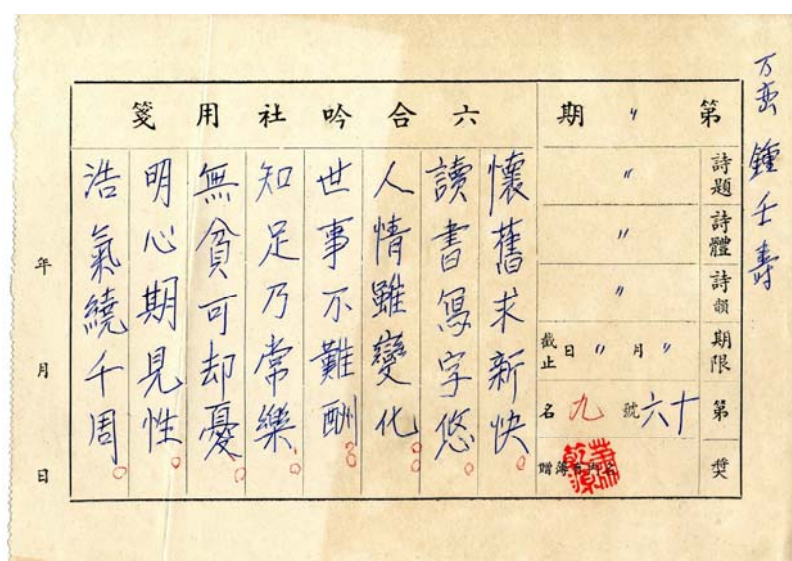 万巒 鍾壬壽
第 〃 期
六合吟社用箋
詩題 〃
詩體 〃
詩韻 〃
期限 〃月〃日截止
第 十六號 九名
獎
懷舊求新快
讀書寫字悠
人情雖變化
世事不難酬
知足乃常樂
無貧可却憂
明心期見性
浩氣繞千周
年 月 日